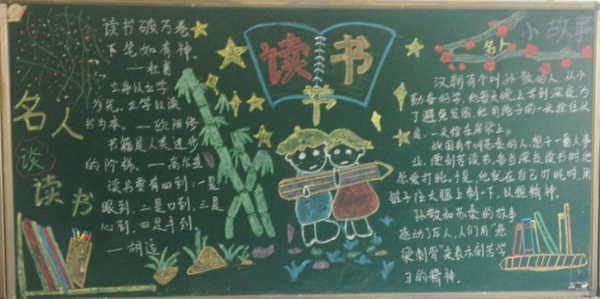 读书破万卷
下笔如有神
——杜甫
立身以立学
为先，立学以读
书为本。——欧阳修
书籍是人类进步
的阶梯。——高尔基
读书要有四到：一是
眼到，二是口到，三是
心到，四是手到。
——胡适
名人
谈
读书
读书
名人
小故事
汉朝有个叫孙敬的人，从小
勤奋好学，他每天晚上学到深夜为
了避免
战国有个叫苏秦的人，想干一番大事
业，便刻苦读书，每当深夜读书时他
总爱打盹，于是，他就在自己打盹时，用
锥子往大腿上刺一下，以
精神。
孙敬和苏秦的故事
感动了后人，人们用“悬
梁刺骨”来表示刻苦学
习的精神。